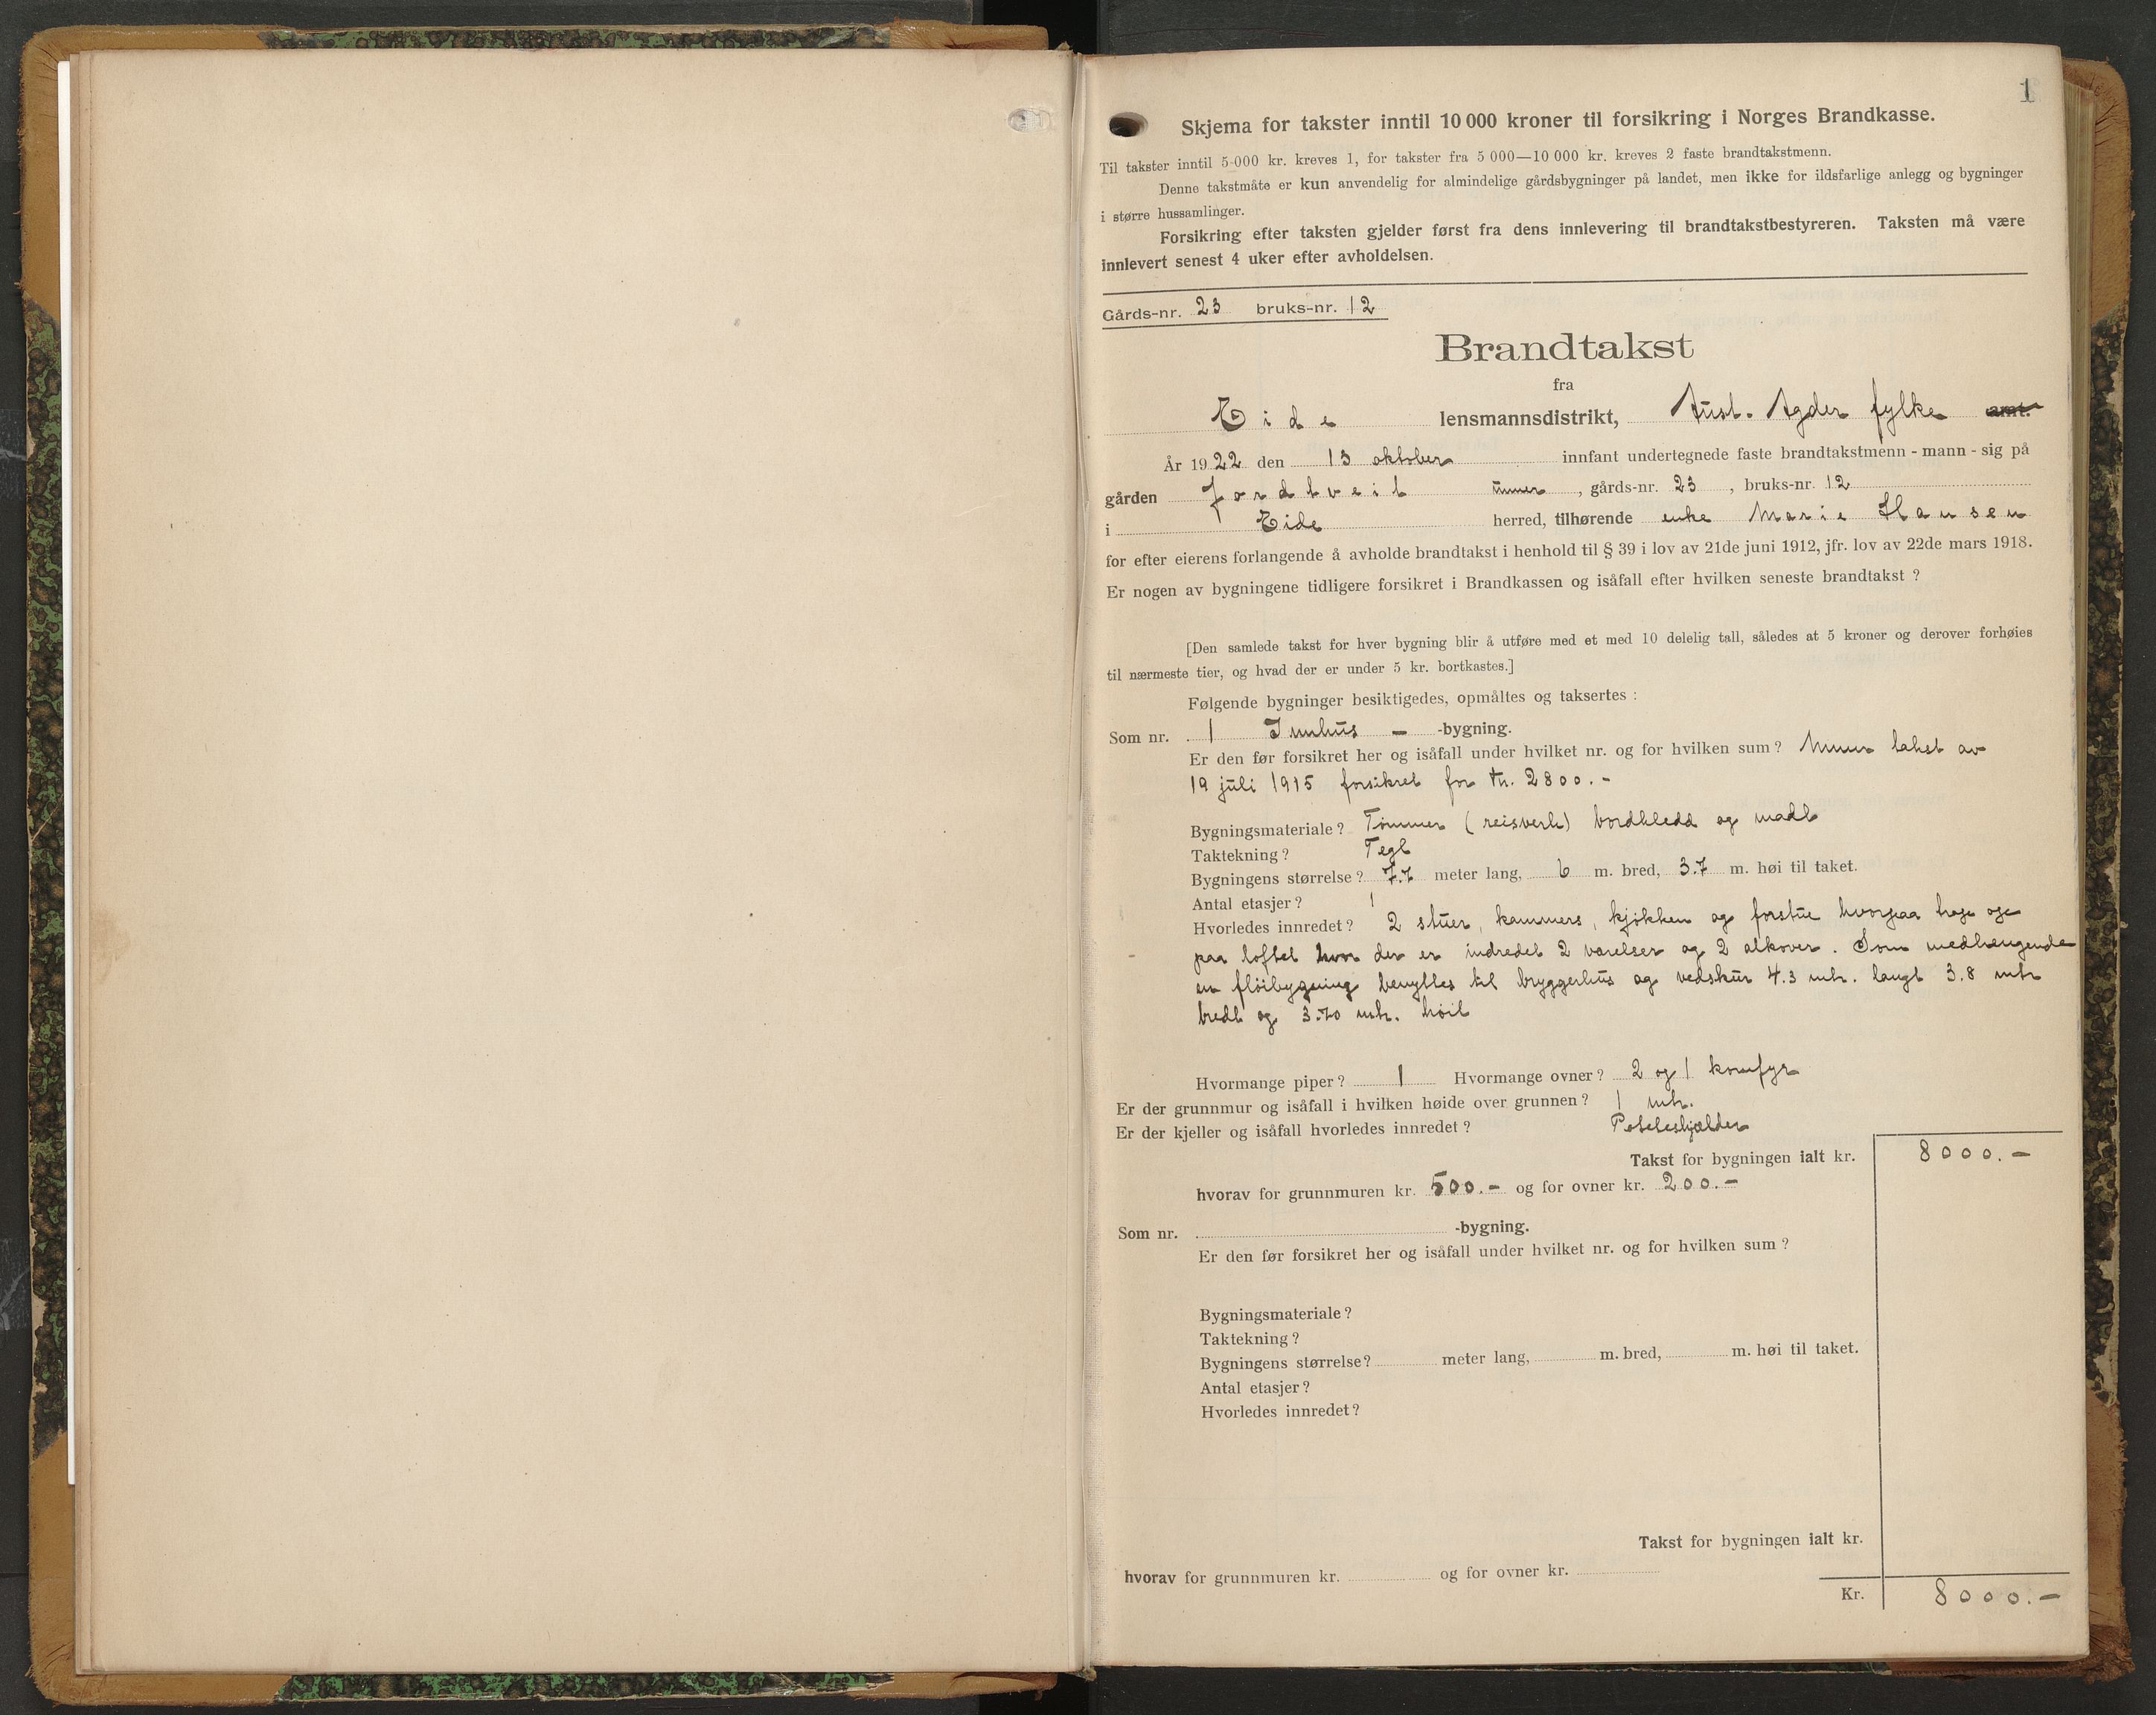 1
Skjema for takster inntil 10 000 kroner til forsikring i Norges Brandkasse.
Til takster inntil 5 000 kr. kreves 1, for takster fra 5 000—10 000 kr. kreves 2 faste brandtakstmenn.
Denne takstmåte er kun anvendelig for almindelige gårdsbygninger på landet, men ikke for ildsfarlige anlegg og bygninger
i større hussamlinger.
Forsikring efter taksten gjelder først fra dens innlevering til brandtakstbestyreren. Taksten må være
innlevert senest 4 uker efter avholdelsen.
Gårds-nr. 23 bruks-nr. 12
Brandtakst
fra
Eide lensmannsdistrikt, Aust-Agder fylke amt.
År 1922 den 13 oktober innfant undertegnede faste brandtakstmenn - mann - sig på
gården Jordtveit , gårds-nr. 23 , bruks-nr. 12
i Eide herred, tilhørende enke Marie Hansen
for efter eierens forlangende å avholde brandtakst i henhold til § 39 i lov av 21de juni 1912, jfr. lov av 22de mars 1918.
Er nogen av bygningene tidligere forsikret i Brandkassen og isåfall efter hvilken seneste brandtakst ?
[Den samlede takst for hver bygning blir å utføre med et med 10 delelig tall, således at 5 kroner og derover forhøies
til nærmeste tier, og hvad der er under 5 kr. bortkastes.]
Følgende bygninger besiktigedes, opmåltes og taksertes :
Som nr. 1 Innhus - -bygning.
Er den før forsikret her og isåfall under hvilket nr. og for hvilken sum ? takst av
19 juli 1915 forsikret for kr. 2800.-
Bygningsmateriale ? Tømmer (reisverk) bordkledd og malt
Taktekning ? Tegl
Bygningens størrelse ? 7.7 meter lang, 6 m. bred, 3.7 m. høi til taket.
Antal etasjer ? 1
Hvorledes innredet ? 2 stuer, kammers, kjøkken og forstue hvorfra trap op
paa loftet hvor der er indredet 2 værelser og 2 alkover. Som medhengende
en fløibygning benyttes til bryggerhus og vedskur 4.3 mtr. langt 3.8 mtr
bredt og 3.70 mtr. høit
Hvormange piper ? 1 Hvormange ovner ? 2 og 1 komfyr
Er der grunnmur og isåfall i hvilken høide over grunnen ? 1 mtr.
Er der kjeller og isåfall hvorledes innredet ? Poteteskjælder
Takst for bygningen ialt kr. 8000.-
hvorav for grunnmuren kr. 500.- og for ovner kr. 200.-
Som nr. -bygning.
Er den før forsikret her og isåfall under hvilket nr. og for hvilken sum ?
Bygningsmateriale ?
Taktekning ?
Bygningens størrelse ? meter lang, m. bred, m. høi til taket.
Antal etasjer ?
Hvorledes innredet ?
Takst for bygningen ialt kr.
hvorav for grunnmuren kr. og for ovner kr.
Kr. 8000.-